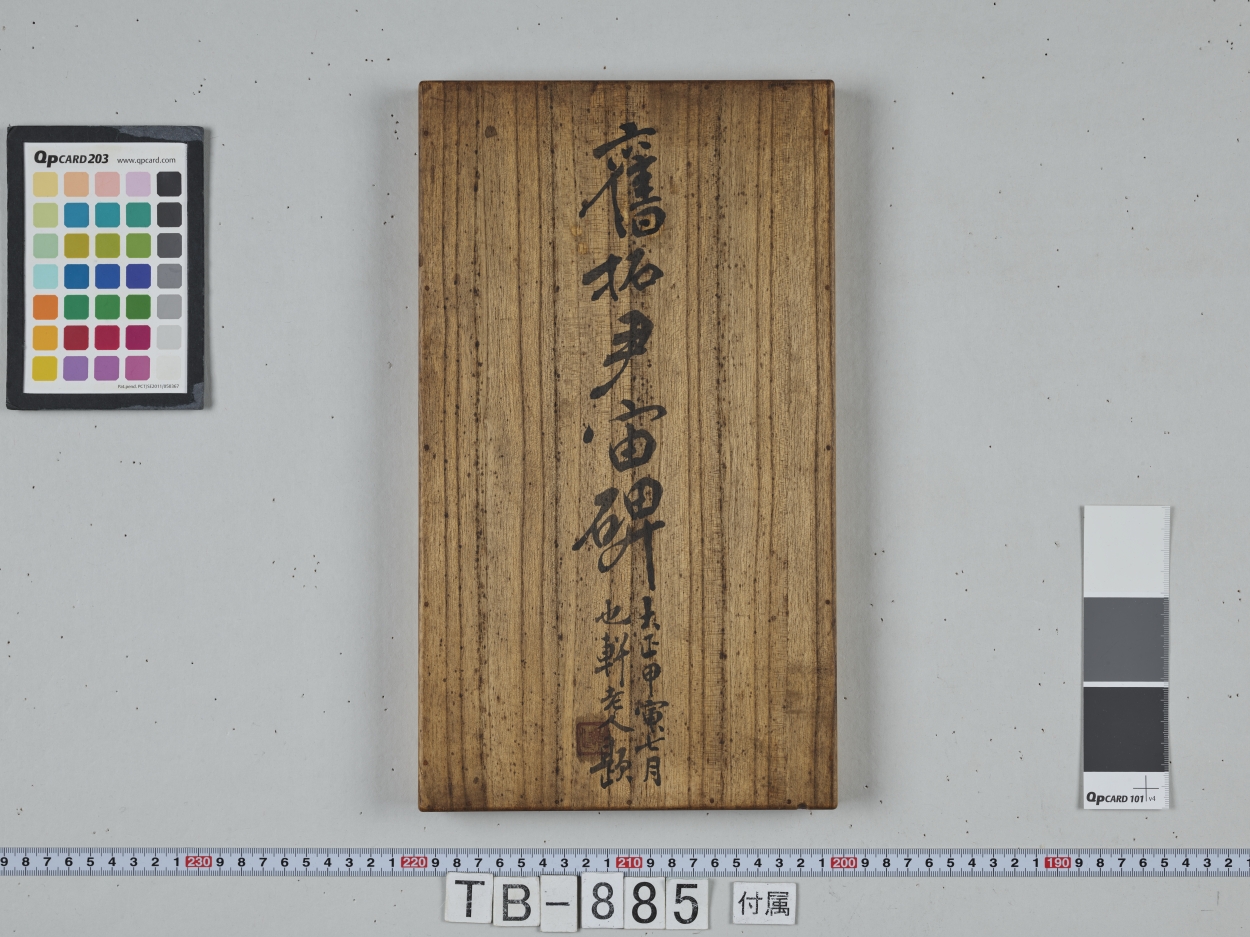 舊拓尹宙碑
大正甲寅七月
也軒老人題
QPCARD 203 www.qpcard.com
Pat.pend. PCT/SE2011/050367
QPCARD 101 v4
9 8 7 6 5 4 3 2 1 230 9 8 7 6 5 4 3 2 1 220 9 8 7 6 5 4 3 2 1 210 9 8 7 6 5 4 3 2 1 200 9 8 7 6 5 4 3 2 1 190 9 8 7 6 5 4 3 2 1
TB-885 付属